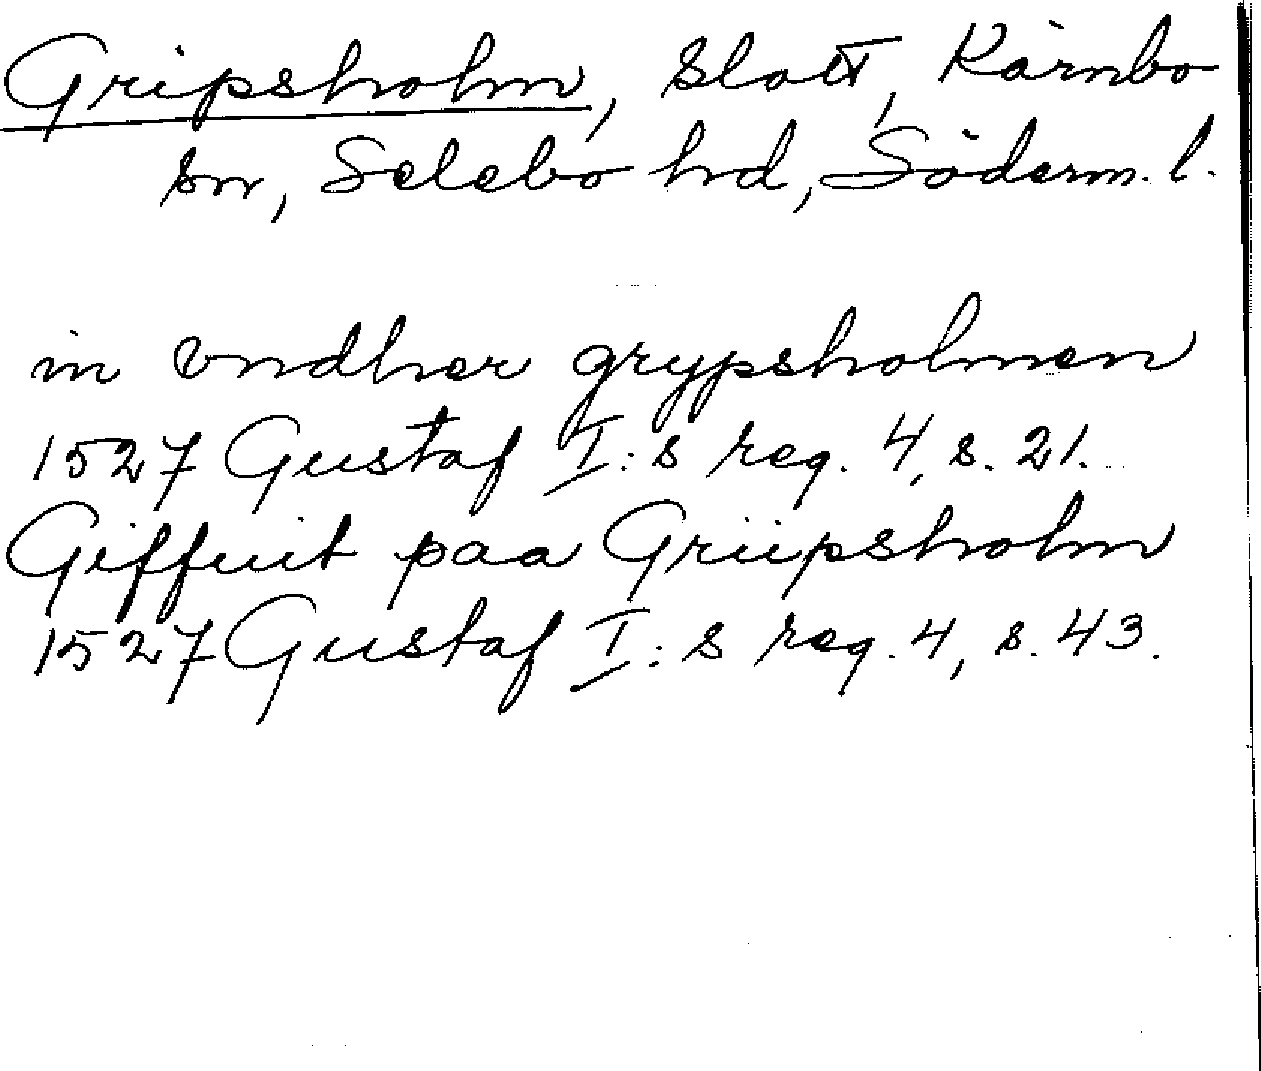 Gripsholm, slott, Kärnbo
sn, Selebo hd, Söderm. l.
in vndher grypsholmen
1527 Gustaf I:s reg. 4, s. 21.
Giffuit paa Griipsholm
1527 Gustaf I:s reg. 4, s. 43.